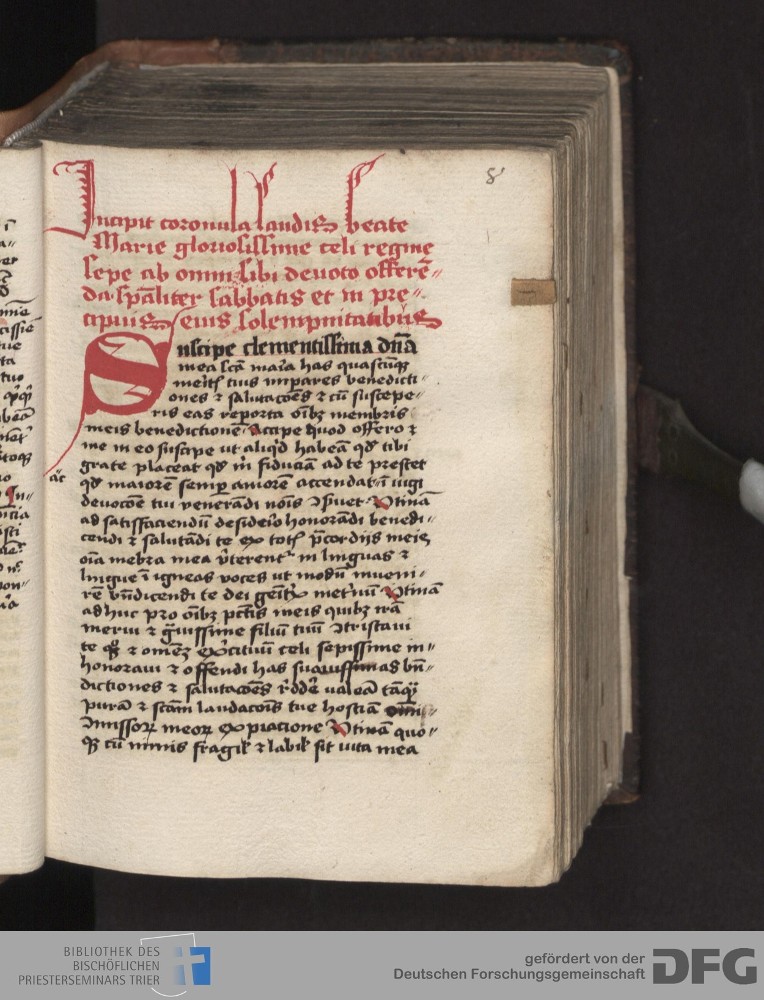 8
Incipit coronula laudis beate
Marie gloriosissime celi regine
sepe ab omni sibi deuoto offerē-
da spāliter sabbatis et in pre-
cipuis eius solempnitatibus
Suscipe clementissima dn̄a
mea scā maria has quascūq̄
tuis impares benedicti-
ones ⁊ salutacōes ⁊ cū suscepe-
ris eas reporta oībꝫ membris
meis benedictionē Accipe quod offero ⁊
me in eo suscipe ut aliqd habeā qd tibi
grate placeat qd m̄ fiduciā ad te prestet
qd maiorē semp amorē accendat ī iugi
deuocōe tui venerādi nōis Vtinā
ad satisfaciendū desiderio honorādi benedi-
cendi ⁊ salutādi te ex totis p̄cordijs meis
oīa mēbra mea v̄terent' in linguas ⁊
lingue ī igneas voces ut modū inueni-
rē bn̄dicendi te dei Vtinā
adhuc pro oībꝫ pctis meis quibꝫ irā
merui ⁊ filiū tuū ꝯtristaui
te ⁊ omēꝫ celi sepissime in-
honoraui ⁊ offendi has suauissimas bn̄-
dictiones ⁊ salutacōes valeā tāq̄
purā ⁊ scām laudacōis tue hostiā
meoꝝ expiacione Vtinā quo-
cū nimis fragil' ⁊ labil' sit uita mea
ac
BIBLIOTHEK DES
BISCHÖFLICHEN
PRIESTERSEMINARS TRIER
gefördert von der
Deutschen Forschungsgemeinschaft
DFG